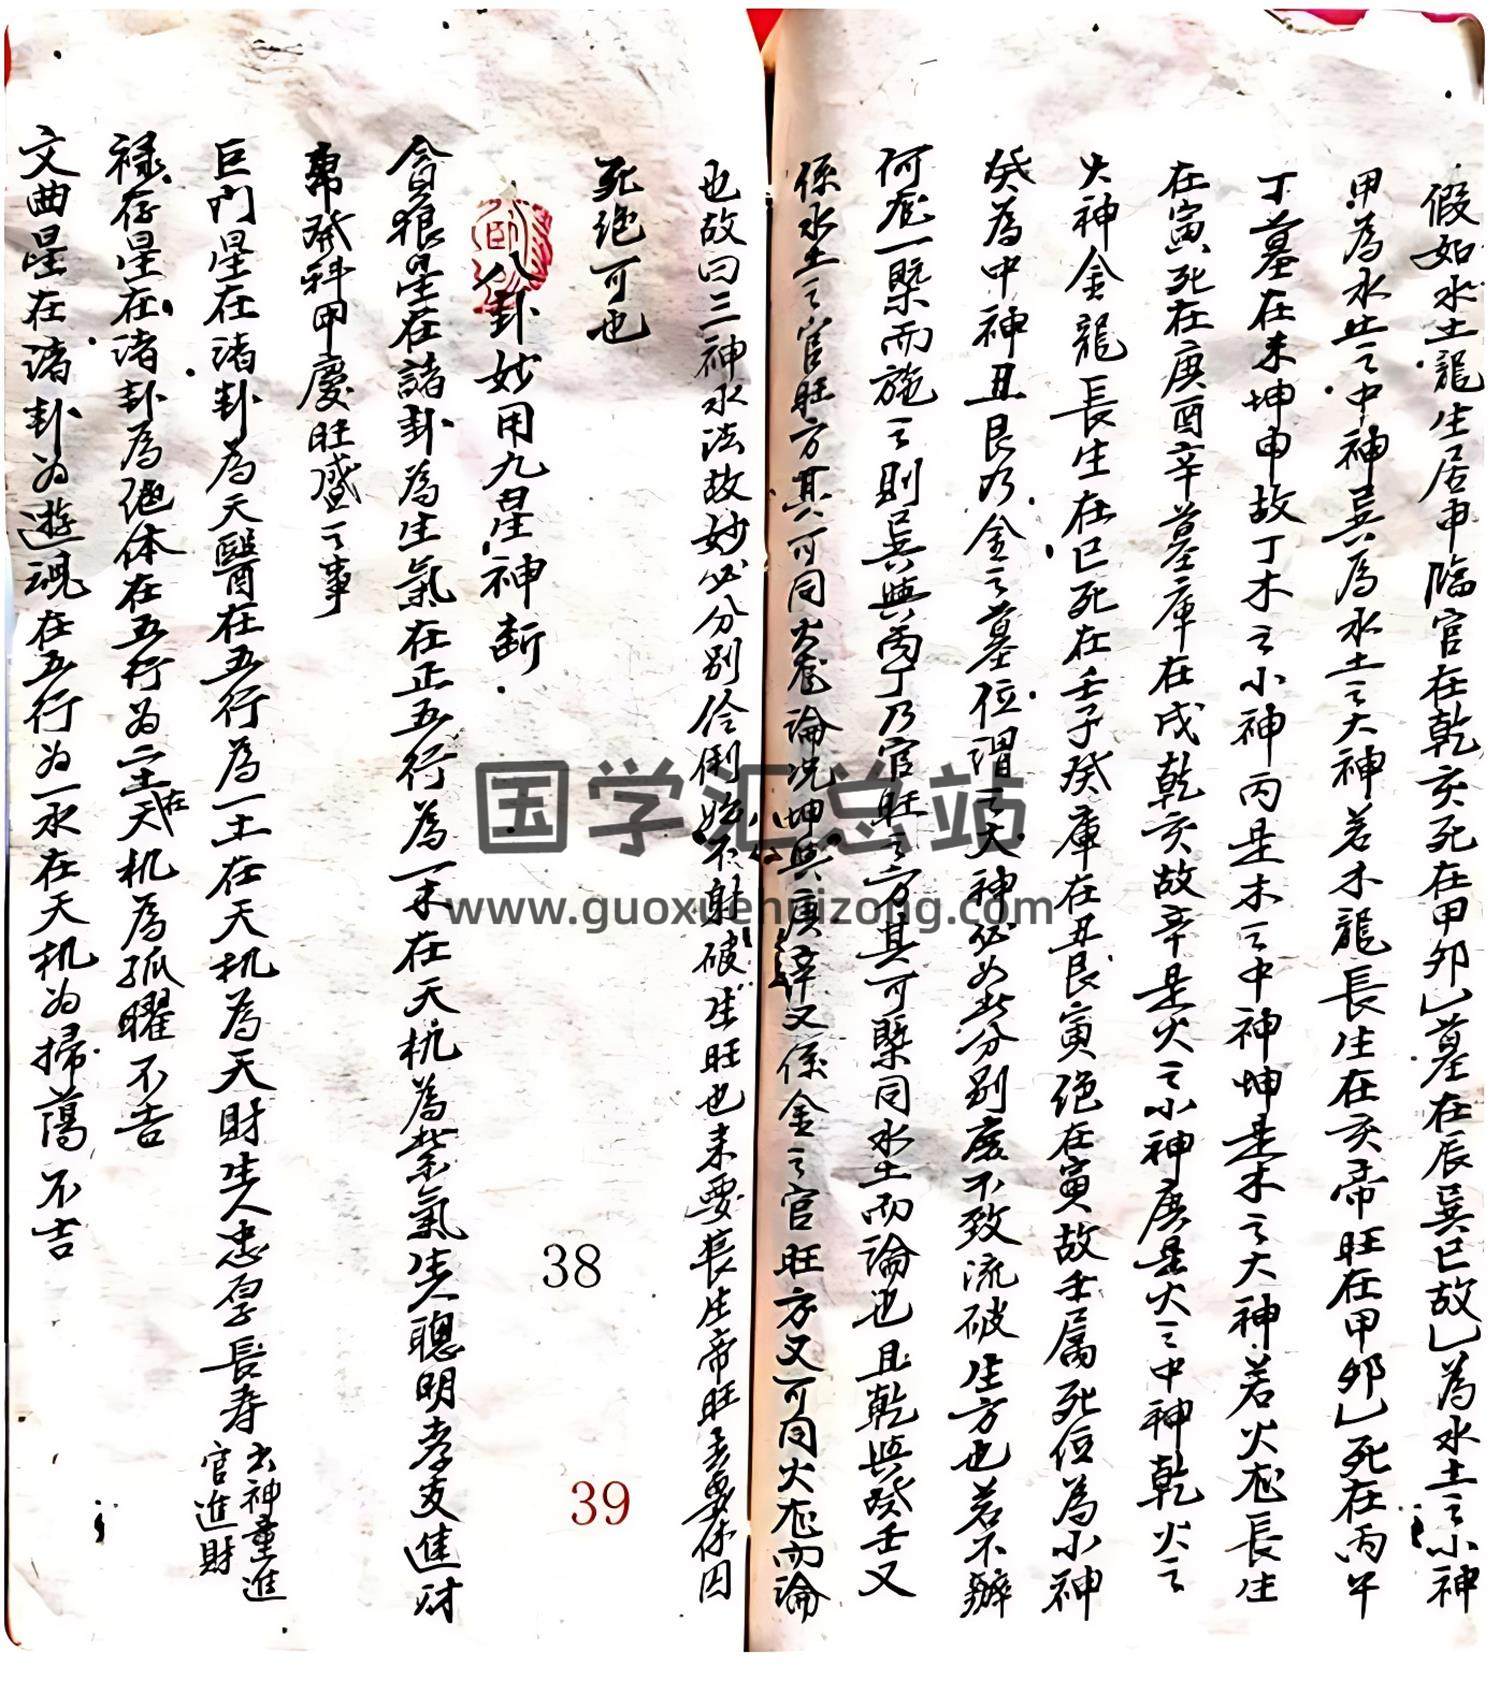 假如水土龍生居申臨官在乾亥死在甲卯乚墓在辰巽巳故乚為水土之小神
甲為水土之中神巽為水土之大神若木龍長生在亥帝旺在甲卯乚死在丙午
丁墓在未坤申故丁木之小神丙是木之中神坤是木之大神若火龙長生
在寅死在庚酉辛墓庫在戌乾亥故辛是火之小神庚是火之中神乾火之
大神金龍長生在巳死在壬子癸庫在丑艮寅绝在寅故壬属死位為小神
癸為中神丑艮乃金之墓位謂之大神必如此分别庶不致流破生方也若不辦
何龙一槩而施之則巽與丙丁乃官旺之方其可槩同水土而論也且乾與癸壬又
係水土之官旺方其可同火龙論况坤與庚辛又係金之官旺方又可同火龙而論
也故曰三神水法故妙必分别伶俐始不射破生旺也来要長生帝旺去要休囚
死绝可也
八卦妙用九星神断
貪狼星在諸卦為生氣在正五行為一木在天机為紫氣生人聰明孝友進財
帛發科甲慶旺盛之事
巨門星在诸卦為天醫在五行為一土在天机為天財生人忠厚長寿
出神童進
官進財
禄存星在诸卦為绝体在五行为二土在天机為孤曜不吉
文曲星在诸卦为遊魂在五行为一水在天机为掃蕩不吉
38
39
国学汇总站
www.guoxuehuizong.com